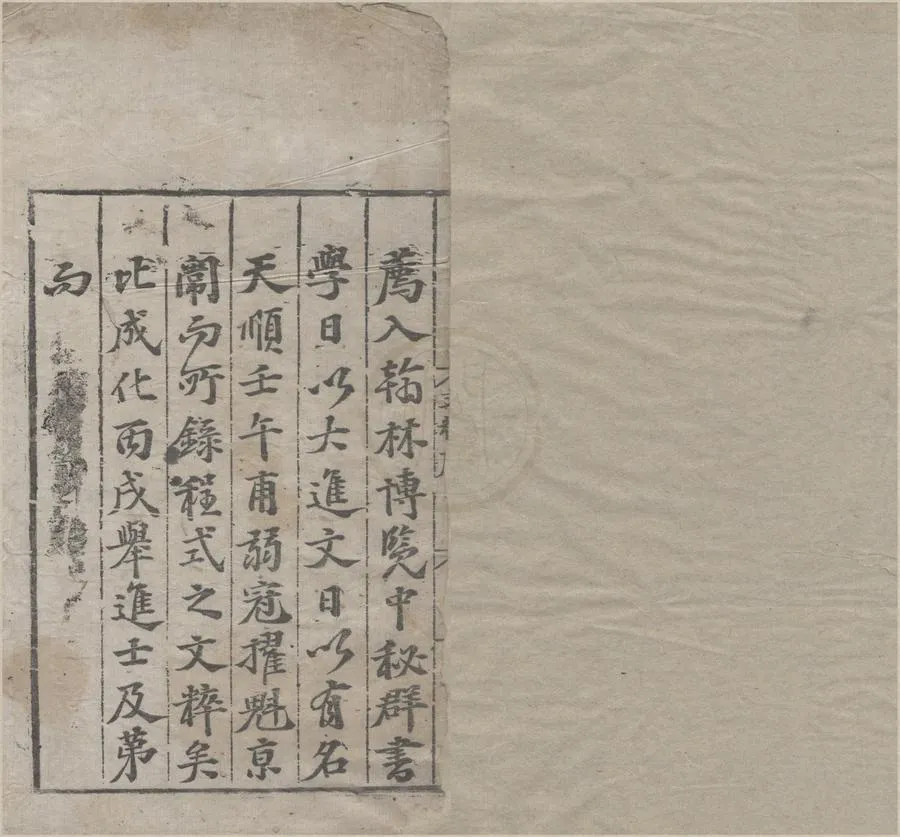 薦入翰林博覽中秘群書
學日以大進文日以有名
天順壬午甫弱冠擢魁京
闈而所錄程式之文粹矣
比成化丙戌舉進士及第
而